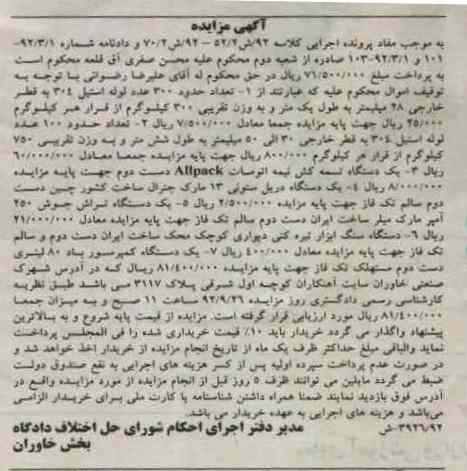 آگهی مزایده
به موجب مفاد پرونده اجرایی کلاسه ۹۲/ش/۵۲/۲ – ۹۲/ش/۷۰/۲ و دادنامه شماره ۹۲/۳/۱-
۱۰۱ و ۹۲/۳/۱-۱۰۳ صادره از شعبه دوم محکوم علیه محسن صفری آق قلعه محکوم است
به پرداخت مبلغ ۷۱/۵۰۰/۰۰۰ ریال در حق محکوم له آقای علیرضا رضوانی با توجه به
توقیف اموال محکوم علیه که عبارتند از ۱- تعداد حدود ۳۰۰ عدد لوله استیل ۳۰٤ به قطر
خارجی ۲۸ میلیمتر به طول یک متر و به وزن تقریبی ۳۰۰ کیلوگرم از قرار هر کیلوگرم
۲۵/۰۰۰ ریال جهت پایه مزایده جمعا معادل ۷/۵۰۰/۰۰۰ ریال ۲- تعداد حدود ۱۰۰ عدد
لوله استیل ۳۰٤ به قطر خارجی ۳۰ الی ۵۰ میلیمتر به طول شش متر و به وزن تقریبی ۷۵۰
کیلوگرم از قرار هر کیلوگرم ۸۰/۰۰۰ ریال جهت پایه مزایده جمعا معادل ۶۰/۰۰۰/۰۰۰
ریال ۳- یک دستگاه تسمه کش نیمه اتومات Allpack دست دوم جهت پایه مزایده
۸/۰۰۰/۰۰۰ ریال ٤- یک دستگاه دریل ستونی ۱۳ مارک جنرال ساخت کشور چین دست
دوم سالم تک فاز جهت پایه مزایده ۲/۵۰۰/۰۰۰ ریال ۵- یک دستگاه ترانس جوش ۲۵۰
آمپر مارک میلر ساخت ایران دست دوم سالم تک فاز جهت پایه مزایده معادل ۲۱/۰۰۰/۰۰۰
ریال ۶- دستگاه سنگ ابزار تیزه کنی دیواری کوچک محک ساخت ایران دست دوم و سالم
تک فاز جهت پایه مزایده معادل ۴۰۰/۰۰۰ ریال ۷- یک دستگاه کمپرسور باد ۸۰ لیتری
دست دوم مستهلک تک فاز جهت پایه مزایده ۸۱/۴۰۰/۰۰۰ ریال که در آدرس شهرک
صنعتی خاوران سایت آهنکاران کوچه اول شرقی پلاک ۳۱۱۷ می باشد طبق نظریه
کارشناسی رسمی دادگستری روز مزایده ۹۲/۹/۲۶ ساعت ۱۱ صبح و به میزان جمعا
۸۱/۴۰۰/۰۰۰ ریال مورد ارزیابی قرار گرفته است. مزایده از قیمت پایه شروع و به بالاترین
پیشنهاد واگذار می گردد خریدار باید ۱۰٪ قیمت خریداری شده را فی المجلس پرداخت
نماید والباقی مبلغ حداکثر ظرف یک ماه از تاریخ انجام مزایده از خریدار اخذ خواهد شد و
در صورت عدم پرداخت سپرده اولیه پس از کسر هزینه های اجرایی به نفع صندوق دولت
ضبط می گردد مایلین می توانند ظرف ۵ روز قبل از انجام مزایده از مورد مزایده واقع در
آدرس فوق بازدید نمایند ضمنا همراه داشتن شناسنامه یا کارت ملی برای خریدار الزامی
می‌باشد و هزینه های اجرایی به عهده خریدار می باشد.
۳۹۲۶/۹۲-ش مدیر دفتر اجرای احکام شورای حل اختلاف دادگاه
بخش خاوران